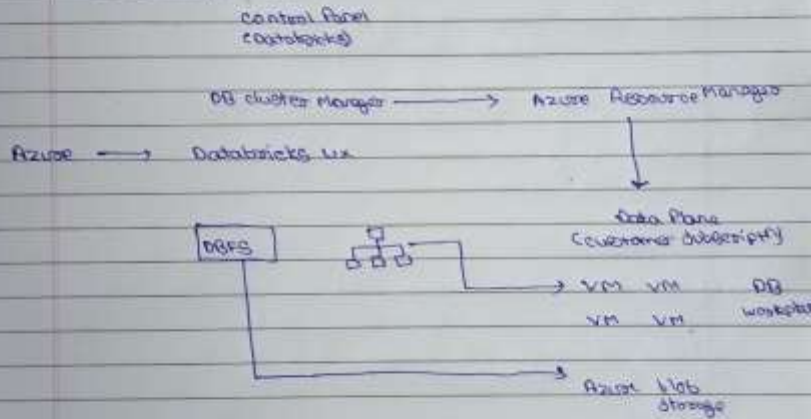 Control Panel
(Databricks)
DB cluster Manager → Azure Resource Manager
Azure → Databricks ux
Data Plane
(customer subscripty)
DBFS
VM VM DB
VM VM
Azure blob
storage